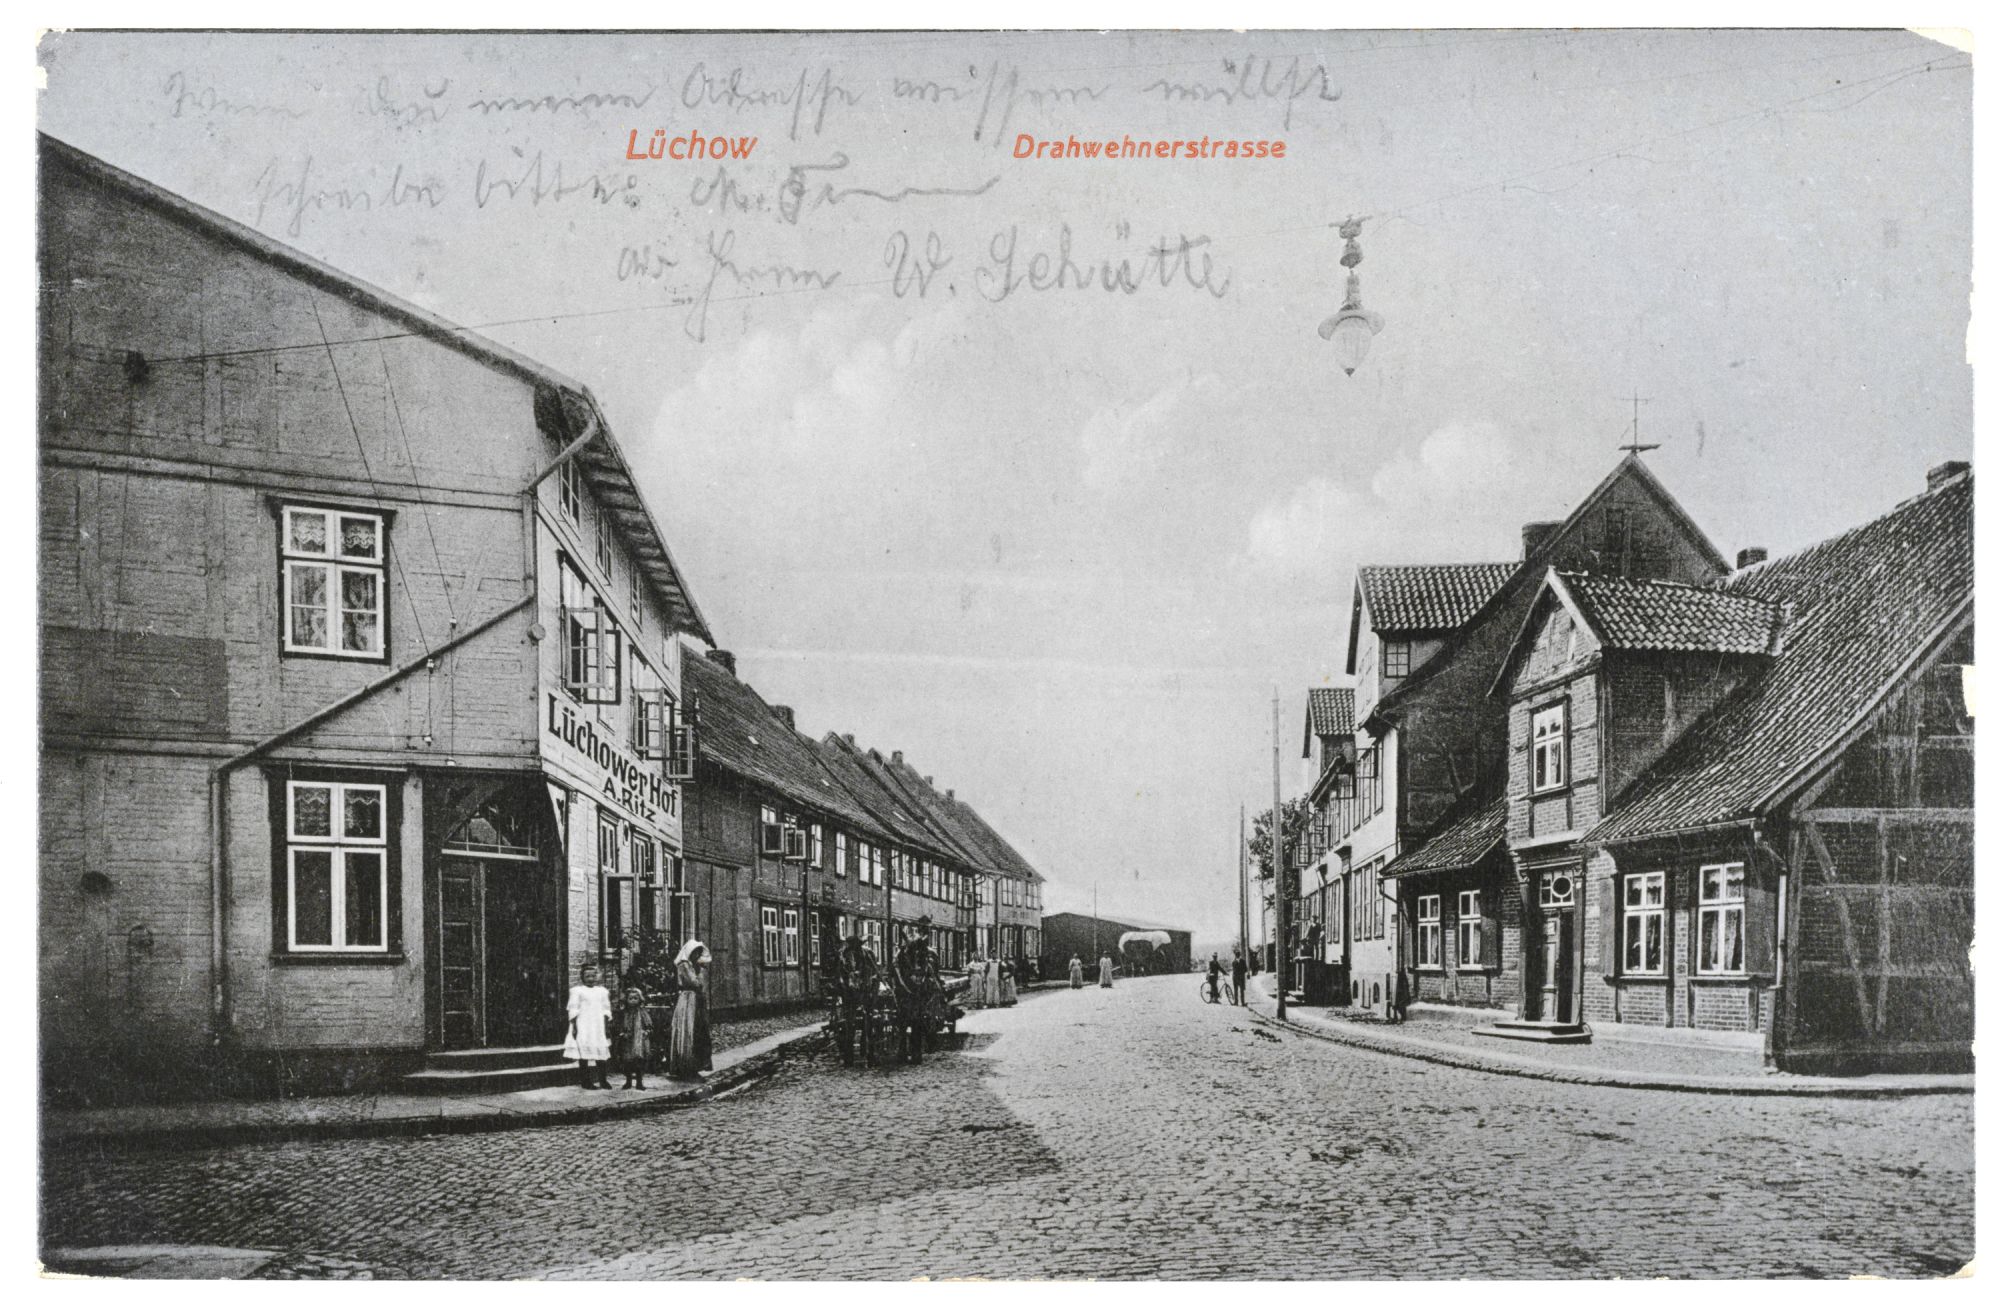 Wenn Du meine Adresse wissen willst
Lüchow
Drahwehnerstrasse
schreibe bitte: M.
Herrn W. Schütte
Lüchower Hof
A. Ritz